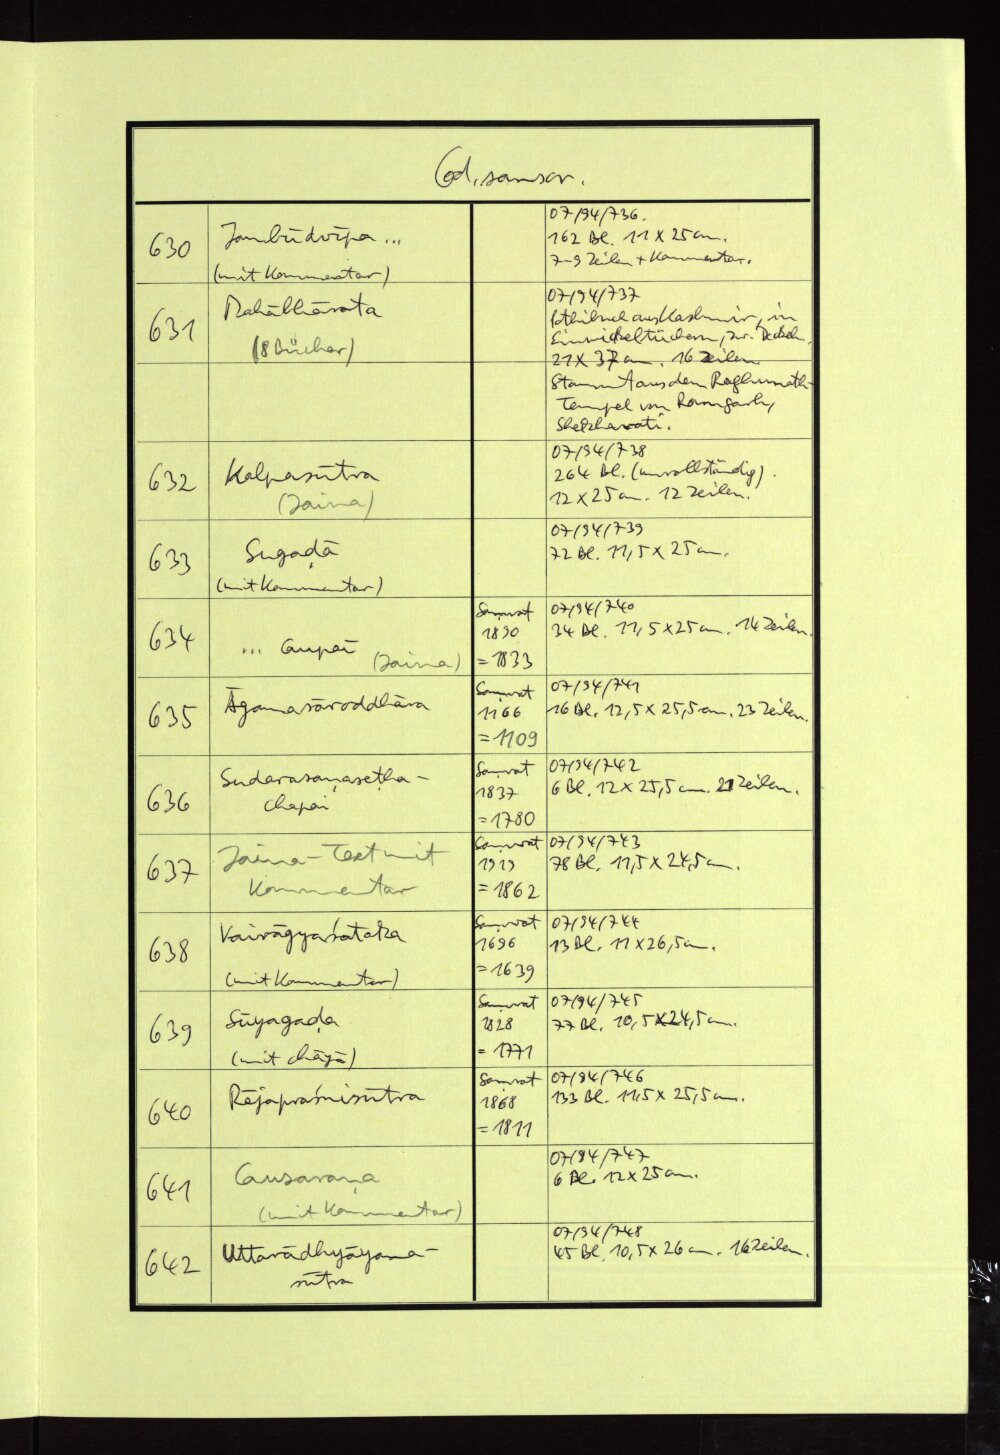 Cod. sanscr.
630
Jambūdvīpa ...
(mit Kommentar)
07/94/736.
162 Bl. 11 x 25 cm.
7-9 Zeilen + Kommentar.
631
Mahābhārata
(18 Bücher)
07/94/737
aus Kashmir, in
Einwickeltüchern, zw. Deckeln.
21 x 37 cm. 16 Zeilen.
Stammt aus dem Raghunath-
Tempel von Ramgarh,
Shekhavati.
632
Kalpasūtra
(Jaina)
07/94/738
264 Bl. (unvollständig).
12 x 25 cm. 12 Zeilen.
633
Sugaḍā
(mit Kommentar)
07/94/739
72 Bl. 11,5 x 25 cm.
634
... Caupai (Jaina)
Saṃvat
1890
= 1833
07/94/740
34 Bl. 11,5 x 25 cm. 14 Zeilen.
635
Āgamasāroddhāra
Saṃvat
1166
= 1109
07/94/741
16 Bl. 12,5 x 25,5 cm. 23 Zeilen.
636
Sudarasaṇaseṭha-
chapai
Saṃvat
1837
= 1780
07/94/742
6 Bl. 12 x 25,5 cm. 21 Zeilen.
637
Jaina-Text mit
Kommentar
Saṃvat
1919
= 1862
07/94/743
78 Bl. 11,5 x 24,5 cm.
638
Vairāgyaśataka
(mit Kommentar)
Saṃvat
1696
= 1639
07/94/744
13 Bl. 11 x 26,5 cm.
639
Sūyagaḍa
(mit chāyā)
Saṃvat
1828
= 1771
07/94/745
77 Bl. 10,5 x 24,5 cm.
640
Rājapraśnisūtra
Saṃvat
1868
= 1811
07/94/746
133 Bl. 11,5 x 25,5 cm.
641
Causaraṇa
(mit Kommentar)
07/94/747
6 Bl. 12 x 25 cm.
642
Uttarādhyāyana-
sūtra
07/94/748
45 Bl. 10,5 x 26 cm. 16 Zeilen.